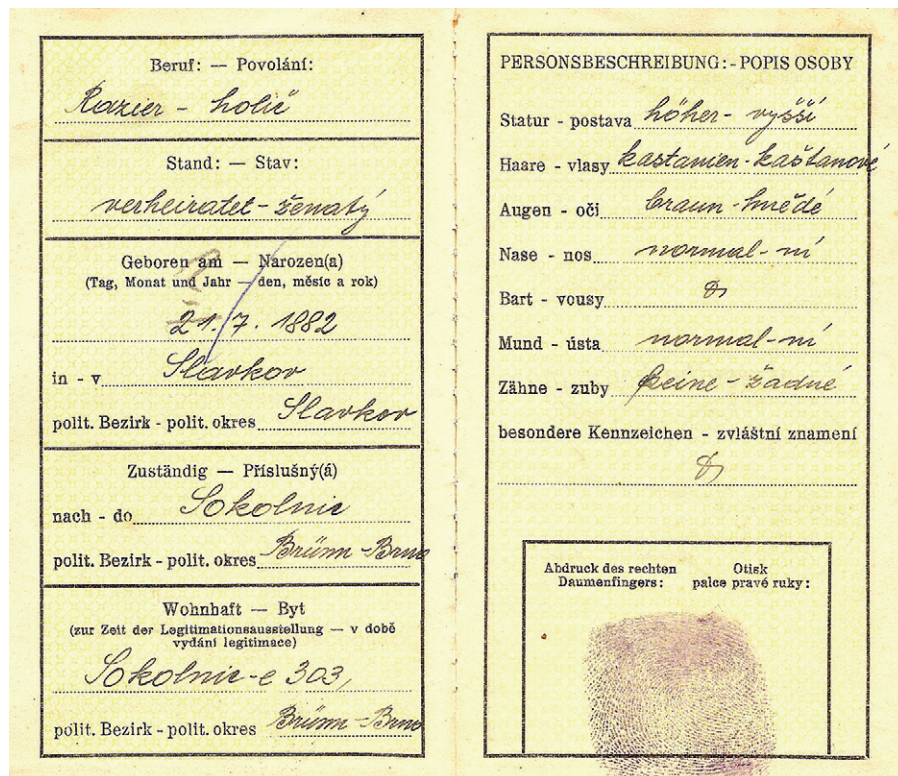 Beruf: — Povolání:
Razier - holič
Stand: — Stav:
verheiratet - ženatý
Geboren am — Narozen(a)
(Tag, Monat und Jahr — den, měsíc a rok)
21. 7. 1882
in - v Slavkov
polit. Bezirk - polit. okres Slavkov
Zuständig — Příslušný(á)
nach - do Sokolnic
polit. Bezirk - polit. okres Brünn - Brno
Wohnhaft — Byt
(zur Zeit der Legitimationsausstellung — v době
vydání legitimace)
Sokolnic-e 303,
polit. Bezirk - polit. okres Brünn - Brno
PERSONSBESCHREIBUNG: - POPIS OSOBY
Statur - postava höher - vyšší
Haare - vlasy kastanien - kaštanové
Augen - oči braun - hnědé
Nase - nos normal - ní
Bart - vousy
Mund - ústa normal - ní
Zähne - zuby keine - žadné
besondere Kennzeichen - zvláštní znamení
Abdruck des rechten Daumenfingers:
Otisk palce pravé ruky: